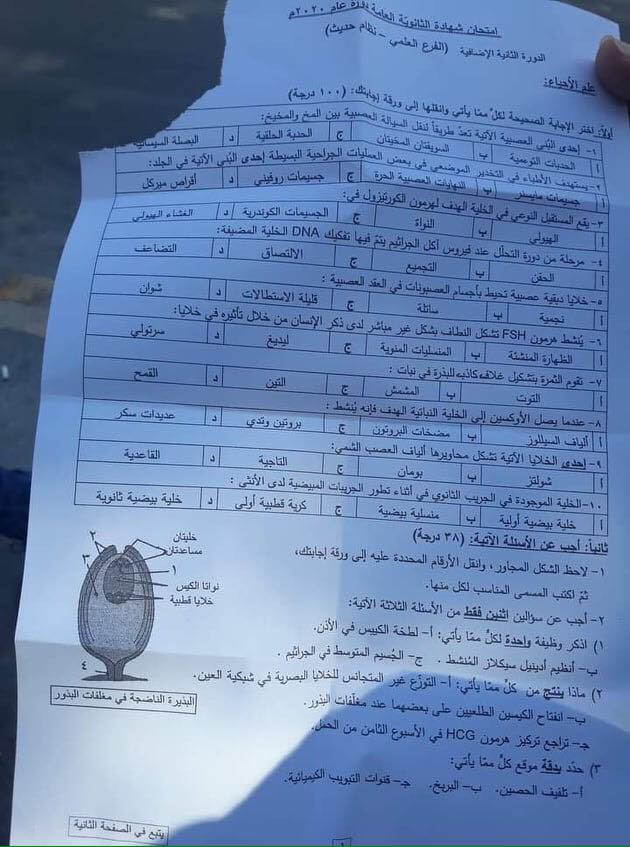 امتحان شهادة الثانوية العامة دورة عام ٢٠٢٠م
الدورة الثانية الإضافية (الفرع العلمي – نظام حديث)
علم الأحياء:
أولاً: اختر الإجابة الصحيحة لكلٍّ ممّا يأتي وانقلها إلى ورقة إجابتك: (١٠٠ درجة)
١- إحدى البُنى العصبية الآتية تعدّ طريقاً لنقل السيالة العصبية بين المخ والمخيخ:
أ الحدبات التوءمية ب السويقتان المخيتان ج الحدبة الحلقية د البصلة السيسائية
٢- يستهدف الأطباء في التخدير الموضعي في بعض العمليات الجراحية البسيطة إحدى البُنى الآتية في الجلد:
أ جسيمات مايسنر ب النهايات العصبية الحرة ج جسيمات روفيني د أقراص ميركل
٣- يقع المستقبل النوعي في الخلية الهدف لهرمون الكورتيزول في:
أ الهيولى ب النواة ج الجسيمات الكوندرية د الغشاء الهيولي
٤- مرحلة من دورة التحلّل عند فيروس آكل الجراثيم يتمّ فيها تفكيك DNA الخلية المضيفة:
أ الحقن ب التجميع ج الالتصاق د التضاعف
٥- خلايا دبقية عصبية تحيط بأجسام العصبونات في العقد العصبية:
أ نجمية ب ساتلة ج قليلة الاستطالات د شوان
٦- يُنشط هرمون FSH تشكل النطاف بشكل غير مباشر لدى ذكر الإنسان من خلال تأثيره في خلايا:
أ الظهارة المنشئة ب المنسليات المنوية ج ليديغ د سرتولي
٧- تقوم الثمرة بتشكيل غلاف كاذب للبذرة في نبات:
أ التوت ب المشمش ج التين د القمح
٨- عندما يصل الأوكسين إلى الخلية النباتية الهدف فإنه يُنشط:
أ ألياف السيللوز ب مضخات البروتون ج بروتين وتدي د عديدات سكر
٩- إحدى الخلايا الآتية تشكل محاويرها ألياف العصب الشمي:
أ شولتز ب بومان ج التاجية د القاعدية
١٠- الخلية الموجودة في الجريب الثانوي في أثناء تطور الجريبات المبيضية لدى الأنثى:
أ خلية بيضية أولية ب منسلية بيضية ج كرية قطبية أولى د خلية بيضية ثانوية
ثانياً: أجب عن الأسئلة الآتية: (٣٨ درجة)
١- لاحظ الشكل المجاور، وانقل الأرقام المحددة عليه إلى ورقة إجابتك،
ثمّ اكتب المسمى المناسب لكل منها.
٢- أجب عن سؤالين اثنين فقط من الأسئلة الثلاثة الآتية:
١) اذكر وظيفة واحدة لكلٍّ ممّا يأتي: أ- لطخة الكييس في الأذن.
ب- أنظيم أدينيل سيكلاز المُنشط. ج- الجُسيم المتوسط في الجراثيم.
٢) ماذا ينتج من كلٍّ ممّا يأتي: أ- التوزّع غير المتجانس للخلايا البصرية في شبكية العين.
ب- انفتاح الكيسين الطلعيين على بعضهما عند مغلّفات البذور.
جـ- تراجع تركيز هرمون HCG في الأسبوع الثامن من الحمل.
٣) حدّد بدقة موقع كلٍّ ممّا يأتي:
أ- تلفيف الحصين. ب- البربخ. جـ- قنوات التبويب الكيميائية.
خليتان
مساعدتان
١
٢
٣
٤
نواتا الكيس
خلايا قطبية
البذيرة الناضجة في مغلفات البذور
يتبع في الصفحة الثانية
١